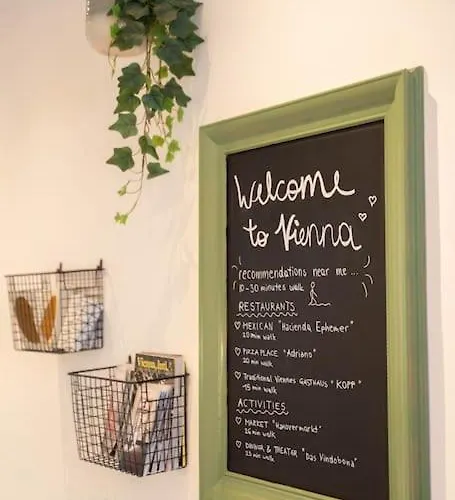 Welcome
to Vienna
recommendations near me ...
10-30 minutes walk
RESTAURANTS
MEXICAN "Hacienda Ephemer"
20 min walk
PIZZA PLACE "Adriano"
20 min walk
Traditional Viennes GASTHAUS "KOPP"
15 min walk
ACTIVITIES
MARKET "Hannovermarkt"
DINNER & THEATER "Das Vindobona"